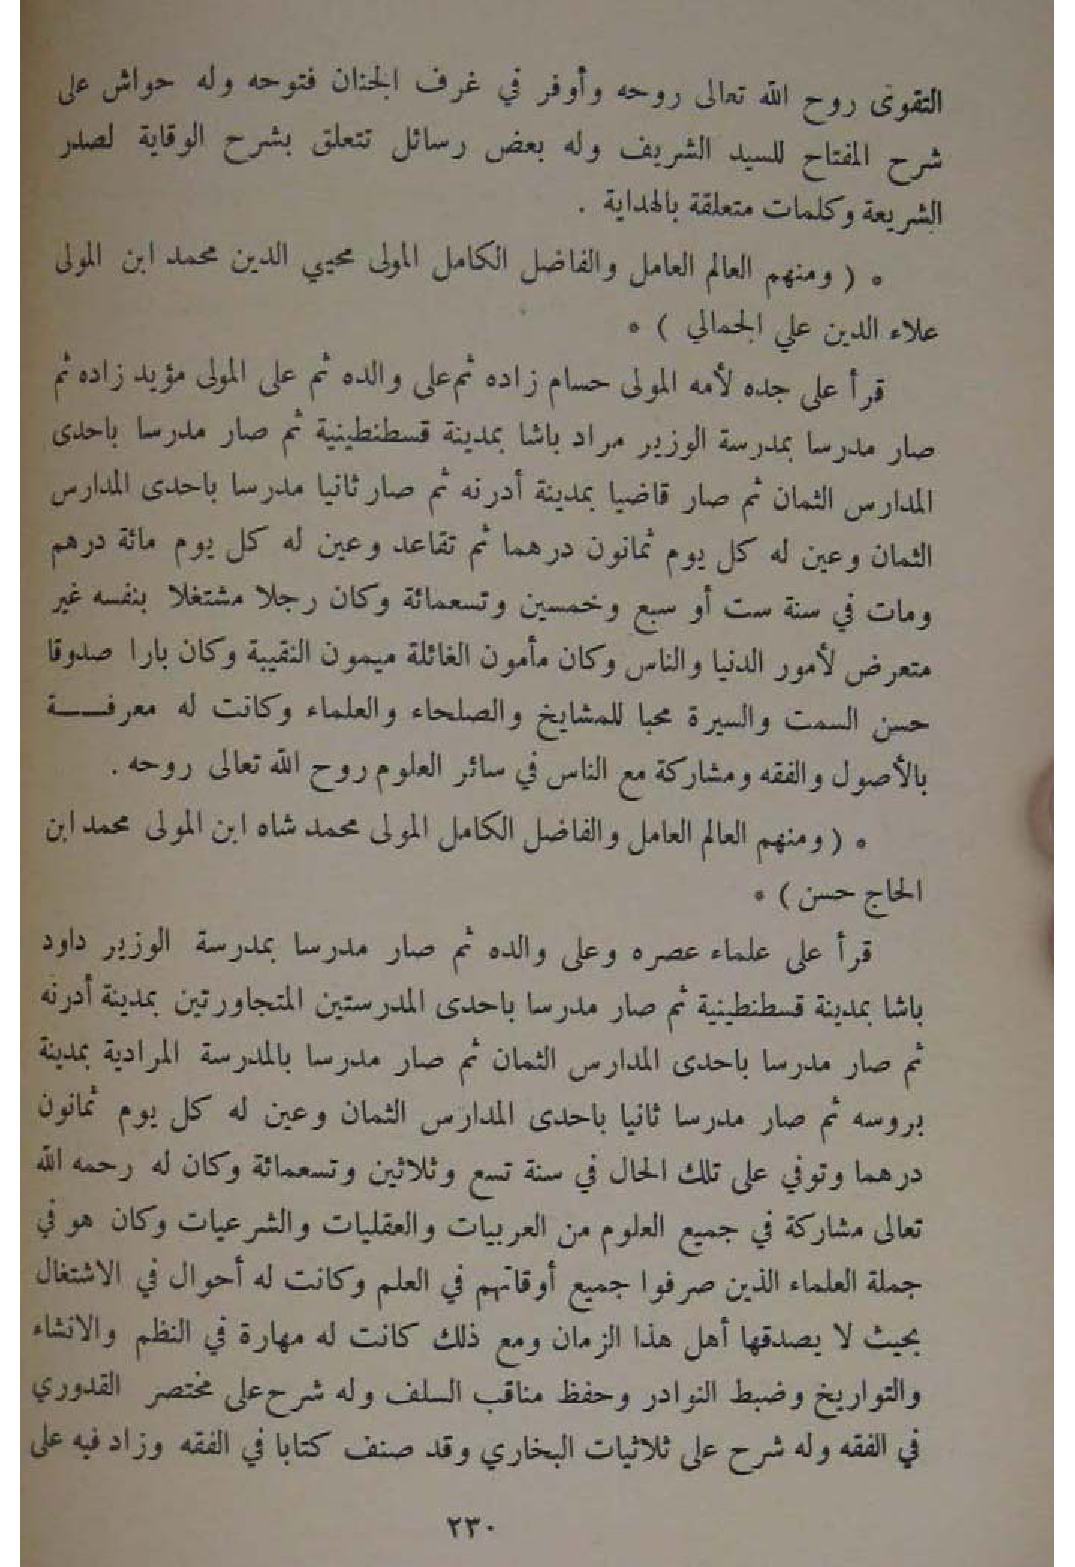 التقوى روح الله تعالى روحه وأوفر في غرف الجنان فتوحه وله حواش على
شرح المفتاح للسيد الشريف وله بعض رسائل تتعلق بشرح الوقاية لصدر
الشريعة وكلمات متعلقة بالهداية .
* ( ومنهم العالم العامل والفاضل الكامل المولى محيي الدين محمد ابن المولى
علاء الدين علي الجمالي ) *
قرأ على جده لأمه المولى حسام زاده ثم على والده ثم على المولى مؤيد زاده ثم
صار مدرسا بمدرسة الوزير مراد باشا بمدينة قسطنطينية ثم صار مدرسا باحدى
المدارس الثمان ثم صار قاضيا بمدينة أدرنه ثم صار ثانيا مدرسا باحدى المدارس
الثمان وعين له كل يوم ثمانون درهما ثم تقاعد وعين له كل يوم مائة درهم
ومات في سنة ست أو سبع وخمسين وتسعمائة وكان رجلا مشتغلا بنفسه غير
متعرض لأمور الدنيا والناس وكان مأمون الغائلة ميمون النقيبة وكان بارا صدوقا
حسن السمت والسيرة محبا للمشايخ والصلحاء والعلماء وكانت له معرفــــة
بالأصول والفقه ومشاركة مع الناس في سائر العلوم روح الله تعالى روحه .
* ( ومنهم العالم العامل والفاضل الكامل المولى محمد شاه ابن المولى محمد ابن
الحاج حسن ) *
قرأ على علماء عصره وعلى والده ثم صار مدرسا بمدرسة الوزير داود
باشا بمدينة قسطنطينية ثم صار مدرسا باحدى المدرستين المتجاورتين بمدينة أدرنه
ثم صار مدرسا باحدى المدارس الثمان ثم صار مدرسا بالمدرسة المرادية بمدينة
بروسه ثم صار مدرسا ثانيا باحدى المدارس الثمان وعين له كل يوم ثمانون
درهما وتوفي على تلك الحال في سنة تسع وثلاثين وتسعمائة وكان له رحمه الله
تعالى مشاركة في جميع العلوم من العربيات والعقليات والشرعيات وكان هو في
جملة العلماء الذين صرفوا جميع أوقاتهم في العلم وكانت له أحوال في الاشتغال
بحيث لا يصدقها أهل هذا الزمان ومع ذلك كانت له مهارة في النظم والانشاء
والتواريخ وضبط النوادر وحفظ مناقب السلف وله شرح على مختصر القدوري
في الفقه وله شرح على ثلاثيات البخاري وقد صنف كتابا في الفقه وزاد فيه على
٢٣٠